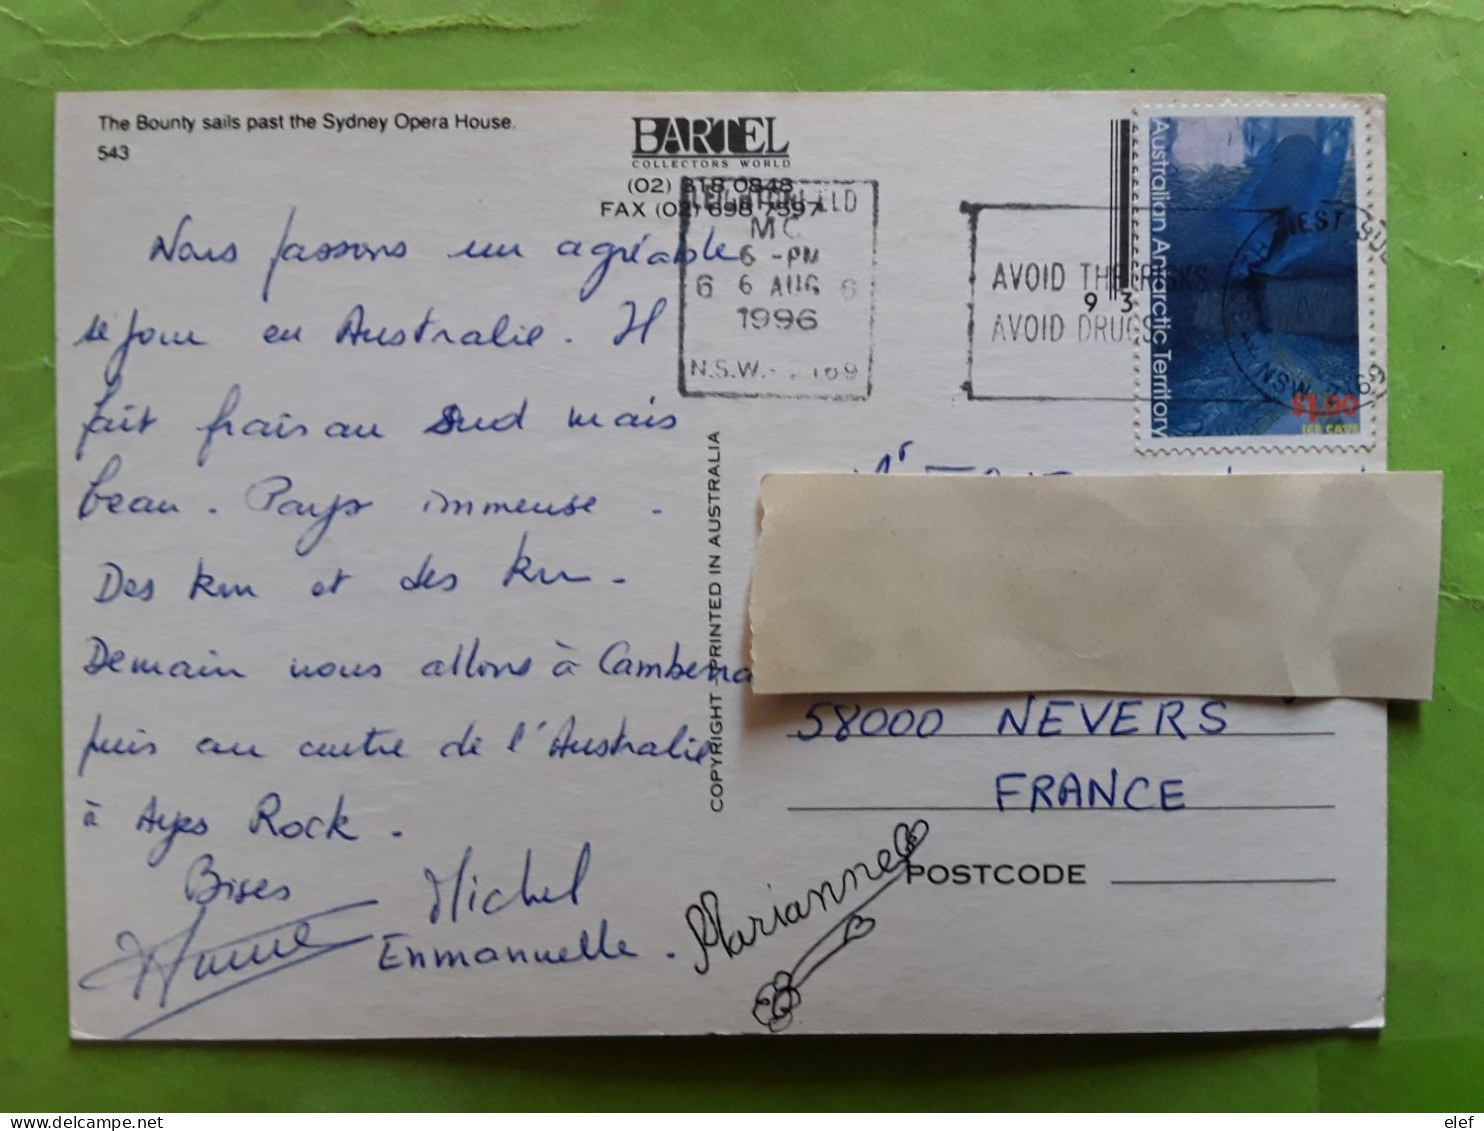 The Bounty sails past the Sydney Opera House.
543
BARTEL
COLLECTORS WORLD
(02) 318 0848
FAX (02) 698 7597
MC
6 -PM
6 6 AUG 6
1996
N.S.W.- 2169
AVOID THE RISKS
AVOID DRUGS
93
Australian Antarctic Territory
$1.00
ICE CAVE
NSW 2165
Nous passons un agréable
séjour en Australie. Il
fait frais au Sud mais
beau. Pays immense.
Des km et des km.
Demain nous allons à Camberra
puis au centre de l'Australie
à Ayes Rock.
Bises
Michel
Enmanuelle.
Marianne
COPYRIGHT - PRINTED IN AUSTRALIA
58000 NEVERS
FRANCE
POSTCODE
elef